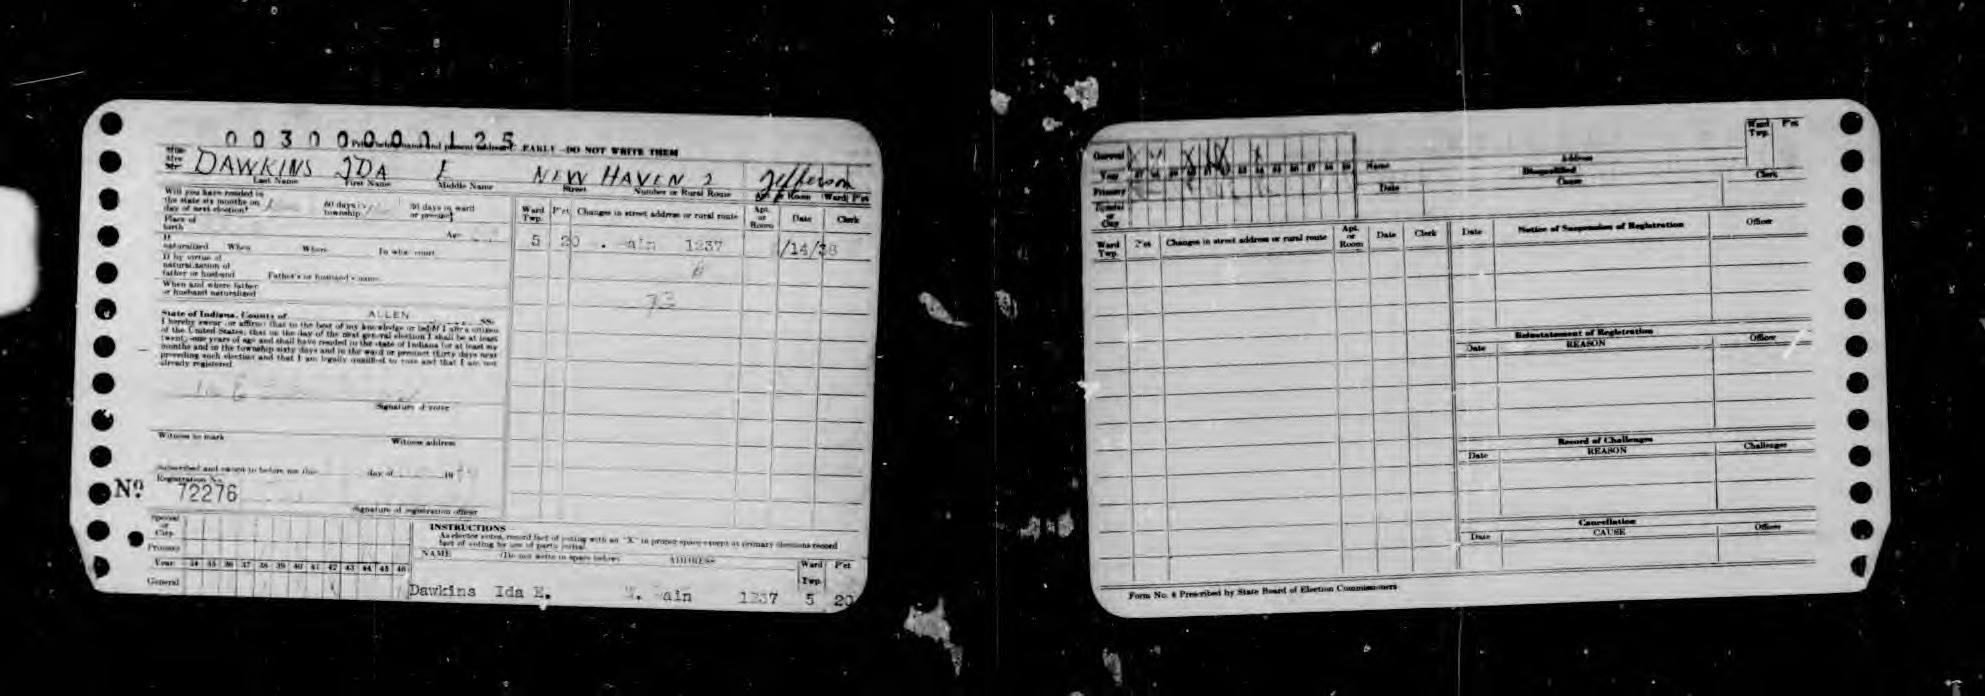 00300000125
EARLY - DO NOT WRITE THEM
DAWKINS IDA E NEW HAVEN 2 Jefferson
Last Name First Name Middle Name Street Number or Rural Route Apt. or Room Ward Pct
Will you have resided in
the state six months on 60 days in 30 days in ward
day of next election? township or precinct
Place of
birth Age
If
naturalized When Where In what court
If by virtue of
naturalization of
father or husband Father's or husband's name
When and where father
or husband naturalized
State of Indiana, County of ALLEN SS:
I hereby swear or affirm that to the best of my knowledge or belief I am a citizen
of the United States, that on the day of the next general election I shall be at least
twenty-one years of age and shall have resided in the state of Indiana for at least six
months and in the township sixty days and in the ward or precinct thirty days next
preceding such election and that I am legally qualified to vote and that I am not
already registered.
Ida E
Signature of voter
Witness to mark Witness address
Subscribed and sworn to before me this day of 19
Registration No.
No. 72276
Signature of registration officer
Ward Twp. Pct Changes in street address or rural route Apt. or Room Date Clerk
5 20 . ain 1237 1/14/38
73
Special or City
Primary
Year 34 35 36 37 38 39 40 41 42 43 44 45 46
General
INSTRUCTIONS
As elector votes, record fact of voting with an "X" in proper space except at primary elections record
fact of voting by use of party initial.
NAME (Do not write in space below) ADDRESS Ward Twp. Pct
Dawkins Ida E. W. ain 1237 5 20
General
Year 47 48 49 52 53 54 55 56 57 58 59
Primary
Special or City
Name Address Ward Twp. Pct
Disqualified
Date Cause Clerk
Ward Twp. Pct Changes in street address or rural route Apt. or Room Date Clerk
Date Notice of Suspension of Registration Officer
Reinstatement of Registration
Date REASON Officer
Record of Challenges
Date REASON Challenger
Cancellation
Date CAUSE Officer
Form No. 6 Prescribed by State Board of Election Commissioners